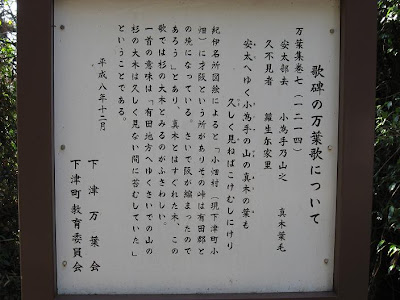 歌碑の万葉歌について
万葉集巻七(一二一四)
安太部去　小為手乃山之　真木葉毛
久不見者　蘿生尓家里
安太へゆく小為手の山の真木の葉も
久しく見ねばこけむしにけり
紀伊名所図絵によると「小畑村(現下津町小
畑)に才阪という所がありその峠は有田郡と
の境になっている。さいで阪が縮まったので
あろう」とあり、真木とはすぐれた木、この
歌では杉の大木とみるのがふさわしい。
一首の意味は「有田地方へゆくさいでの山の
杉の大木は久しく見ない間に苔むしていた」
ということである。
平成八年十二月
下津万葉会
下津町教育委員会